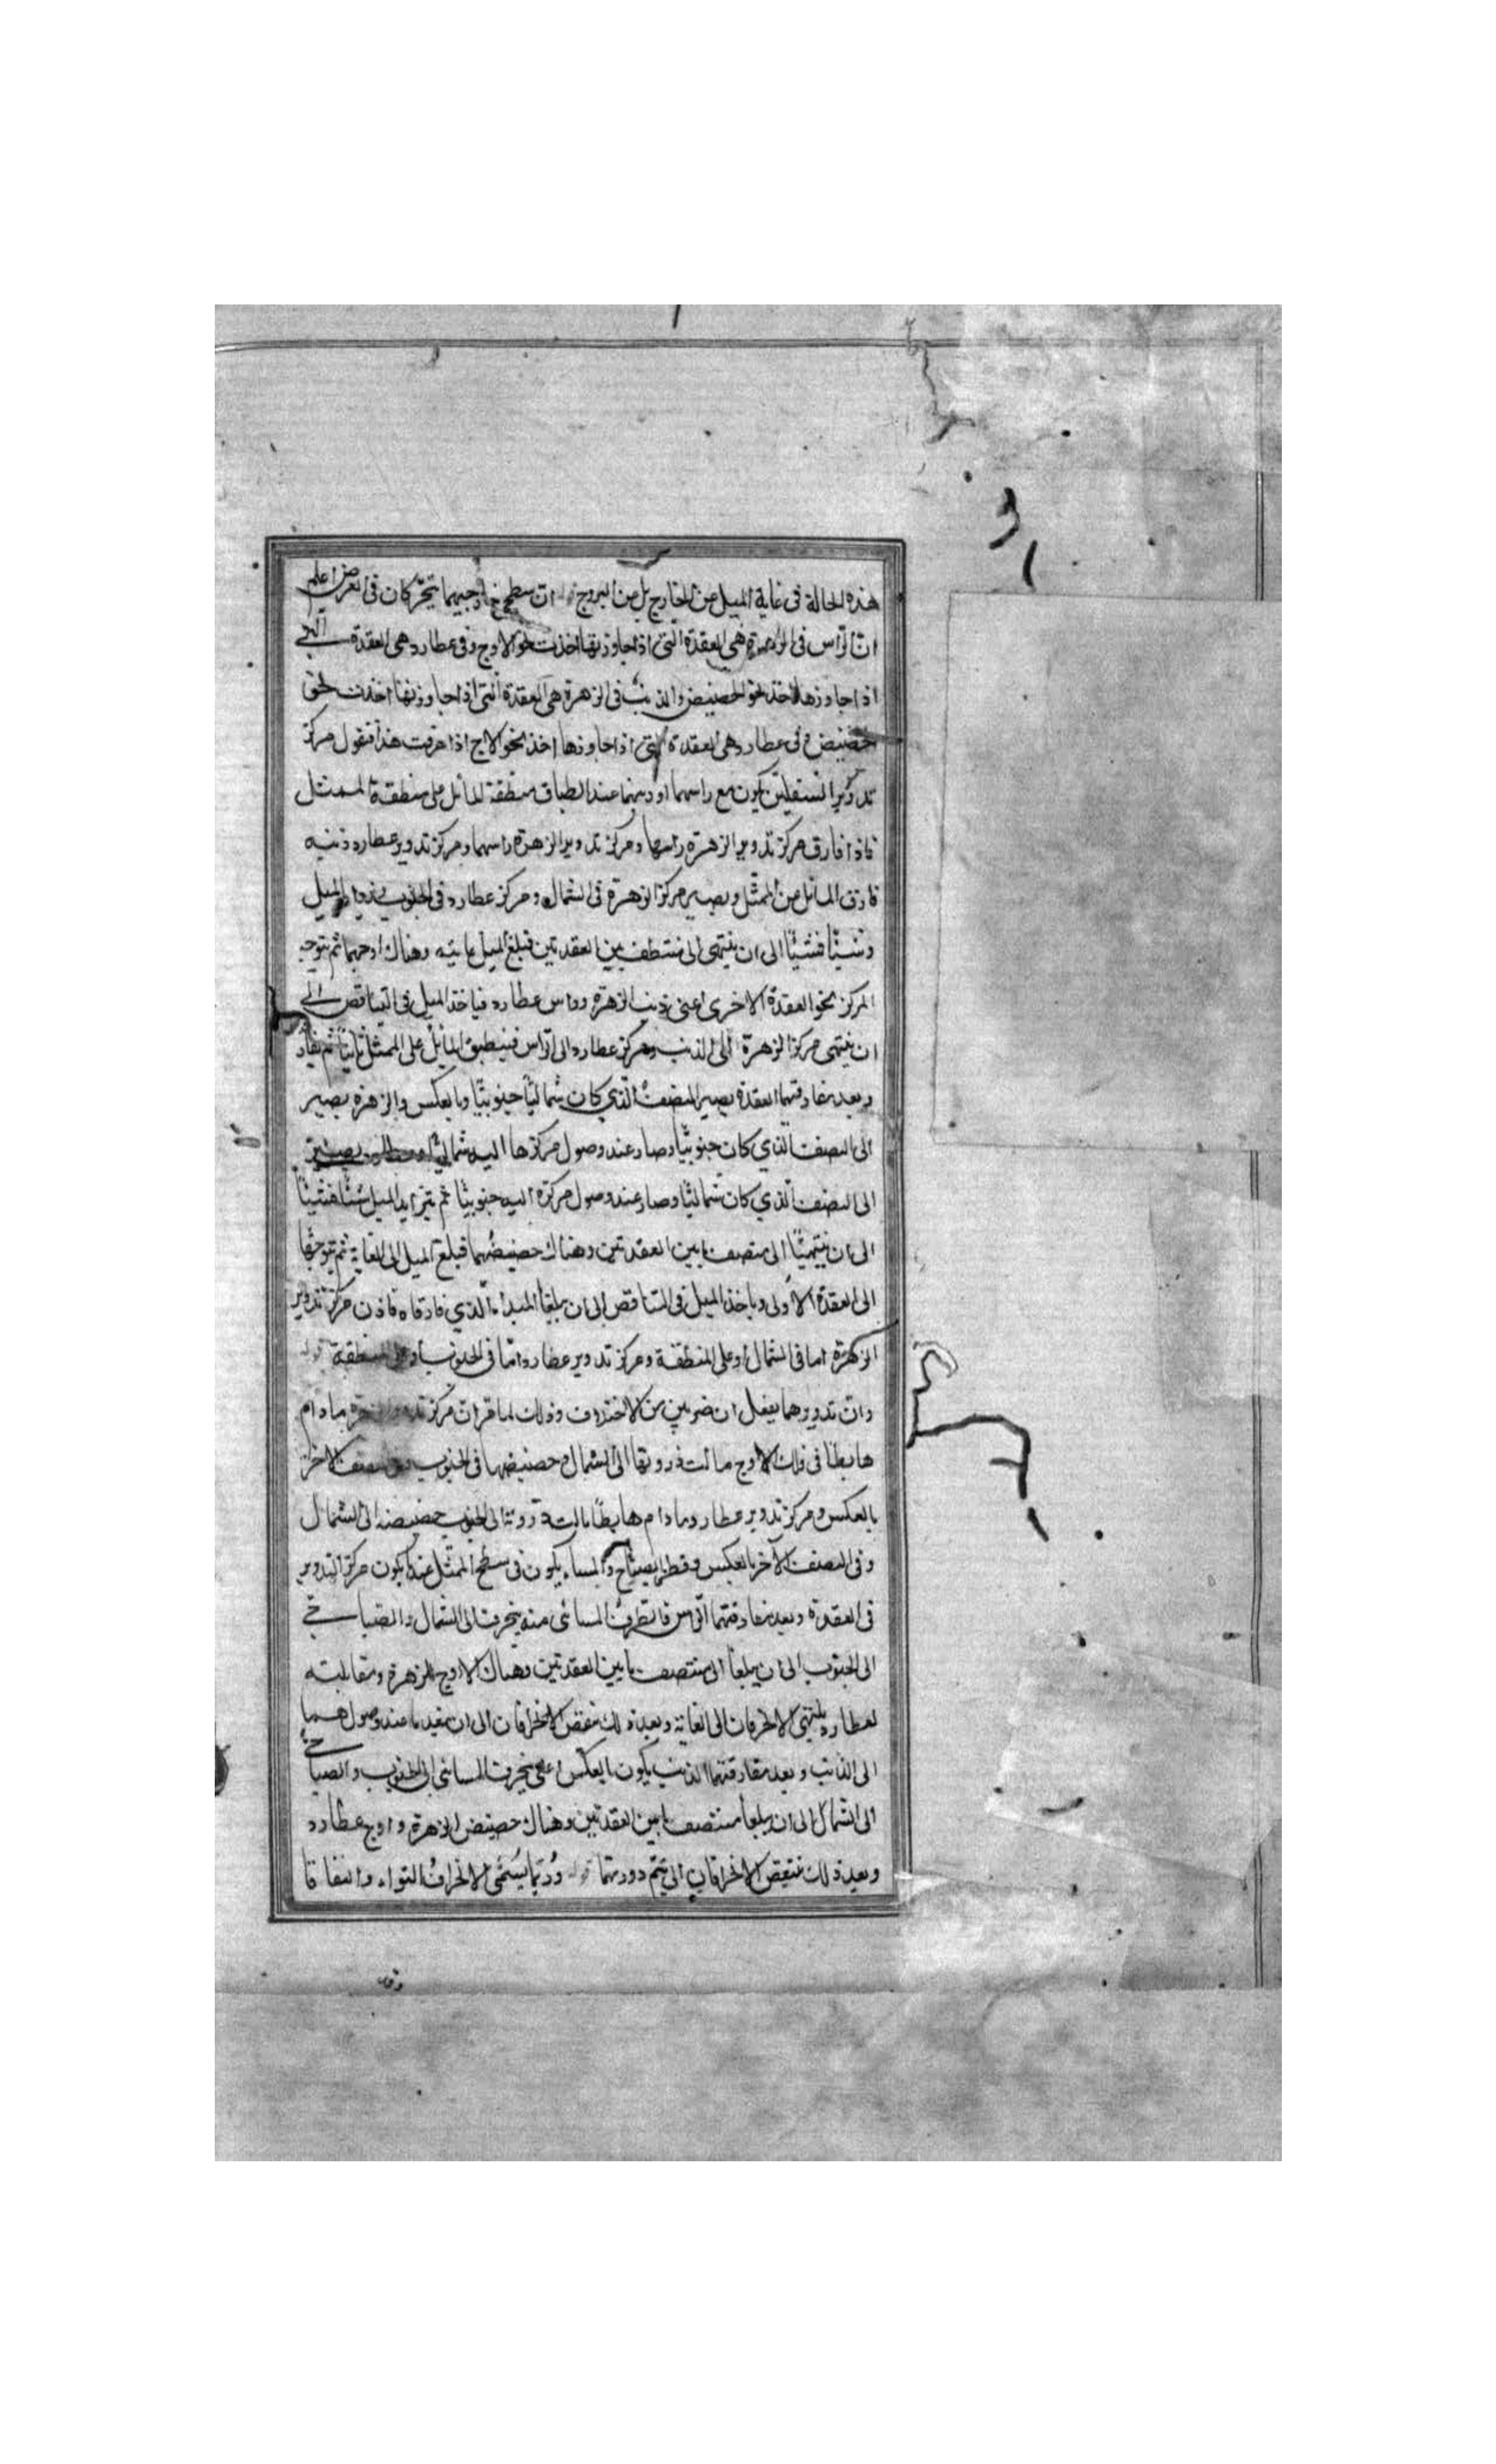 هذه الحالة فى غاية الميل عن الخارج بل عن البروج قوله ان سطحى خارجيهما يتحركان فى العرض اعلم
ان الرأس فى الزهرة هى العقدة التى اذا جاوزتها اخذت نحو الاوج وفى عطارد هى العقدة التى
اذا جاوزها اخذ نحو الحضيض والذنب فى الزهرة هى العقدة التى اذا جاوزتها اخذت نحو
الحضيض وفى عطارد هى العقدة التى اذا جاوزها اخذ نحو الاوج اذا عرفت هذا فنقول مركز
تدوير السفليين يكون مع راسهما او ذنبهما عند انطباق منطقة المائل على منطقة الممثل
فاذا فارق مركز تدوير الزهرة راسها ومركز تدوير الزهرة راسهما ومركز تدوير عطارد ذنبه
فارق المائل عن الممثل ويصير مركز الزهرة فى الشمال ومركز عطارد فى الجنوب الميل
وشيئًا فشيئًا الى ان ينتهى الى منتصف بين العقدتين فبلغ الميل غايته وهناك اوجهما ثم يتوجه
المركز نحو العقدة الاخرى اعنى ذنب الزهرة وراس عطارد فياخذ الميل فى التناقص الى
ان ينتهى مركز الزهرة الى الذنب ومركز عطارد الى الراس فينطبق المائل على الممثل ثانيًا ثم
وبعد مفارقتهما العقدة يصير النصف الذي كان شماليًا جنوبيًا وبالعكس والزهرة يصير
الى النصف الذي كان جنوبيًا وصار عند وصول مركزها اليه شماليًا
الى النصف الذي كان شماليًا وصار عند وصول مركزه اليه جنوبيًا ثم يتزايد الميل شيئًا فشيئًا
الى ان ينتهيا الى منتصف ما بين العقدتين وهناك حضيضهما فبلغ الميل الى الغاية ثم يتوجها
الى العقدة الاولى وياخذ الميل فى التناقص الى ان يبلغا المبدأ الذي فارقاه فاذن مركز تدوير
الزهرة اما فى الشمال او على المنطقة ومركز تدوير عطارد اما فى الجنوب او على المنطقة قوله
وان تدويرهما يفعلان ضربين من الاختلاف وذلك لما قر ان مركز تدوير الزهرة ما دام
هابطًا فى فلك الاوج مالت ذروتها الى الشمال وحضيضها فى الجنوب وفى النصف الاخر
بالعكس ومركز تدوير عطارد ما دام هابطًا مالت ذروته الى الجنوب حضيضه الى الشمال
وفى النصف الآخر بالعكس وقطر الصباح والمساء يكون فى سطح الممثل عند كون مركز التدوير
فى العقدة وبعد مفارقتهما الراس فالطرف المسائى منه ينحرف الى الشمال والصباحى
الى الجنوب الى ان يبلغا الى منتصف ما بين العقدتين وهناك الاوج للزهرة ومقابلته
لعطارد ينتهى الانحرفان الى الغاية وبعد ذلك ينقص الانحرافان الى ان ينعدما عند وصولهما
الى الذنب وبعد مفارقتهما الذنب يكون بالعكس اعنى ينحرف المسائى الى الجنوب والصباحى
الى الشمال الى ان يبلغا منتصف ما بين العقدتين وهناك حضيض الزهرة واوج عطارد
وبعد ذلك ينتقص الانحرافان الى يتم دورتهما قوله وربما يسمى الانحراف التواء والتفافا